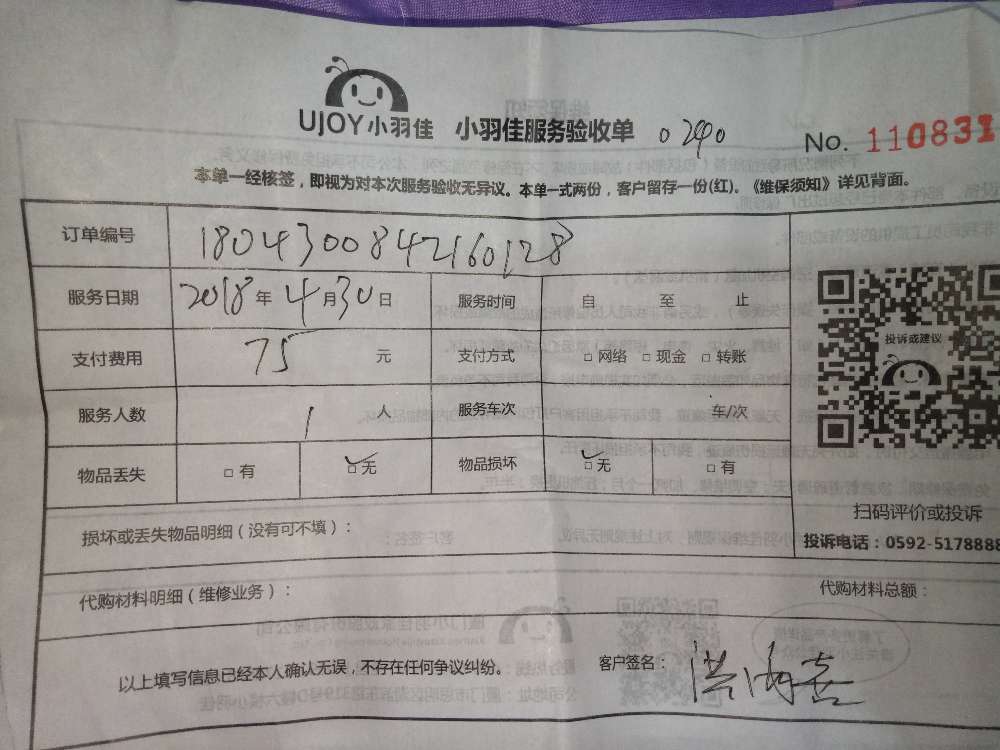 UJOY小羽佳 小羽佳服务验收单 0290 No. 110831
本单一经核签，即视为对本次服务验收无异议。本单一式两份，客户留存一份(红)。《维保须知》详见背面。
订单编号 1804300842160128
服务日期 2018年4月30日 服务时间 自 至 止
支付费用 75 元 支付方式 □网络 □现金 □转账
投诉或建议
服务人数 1 人 服务车次 车/次
物品丢失 □有 ☑无 物品损坏 ☑无 □有
扫码评价或投诉
损坏或丢失物品明细（没有可不填）：
投诉电话：0592-5178888
代购材料明细（维修业务）： 代购材料总额：
以上填写信息已经本人确认无误，不存在任何争议纠纷。 客户签名：